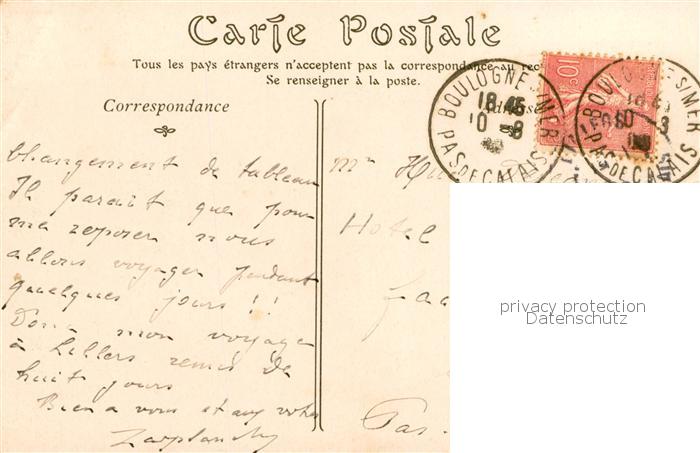 Carte Postale
Tous les pays étrangers n'acceptent pas la correspondance au rec
Se renseigner à la poste.
Correspondance
Adresse
10c
BOULOGNE S/MER
18 45
10 - 8
PAS DE CALAIS
BOULOGNE S/MER
10 - 8
PAS DE CALAIS
Changement de tableau
Il parait que pour
me reposer nous
allons voyager pendant
quelques jours !!
Donc mon voyage
à Lillers remis de
huit jours
Bien à vous et aux votres
Mr
Hotel
Pas
privacy protection
Datenschutz